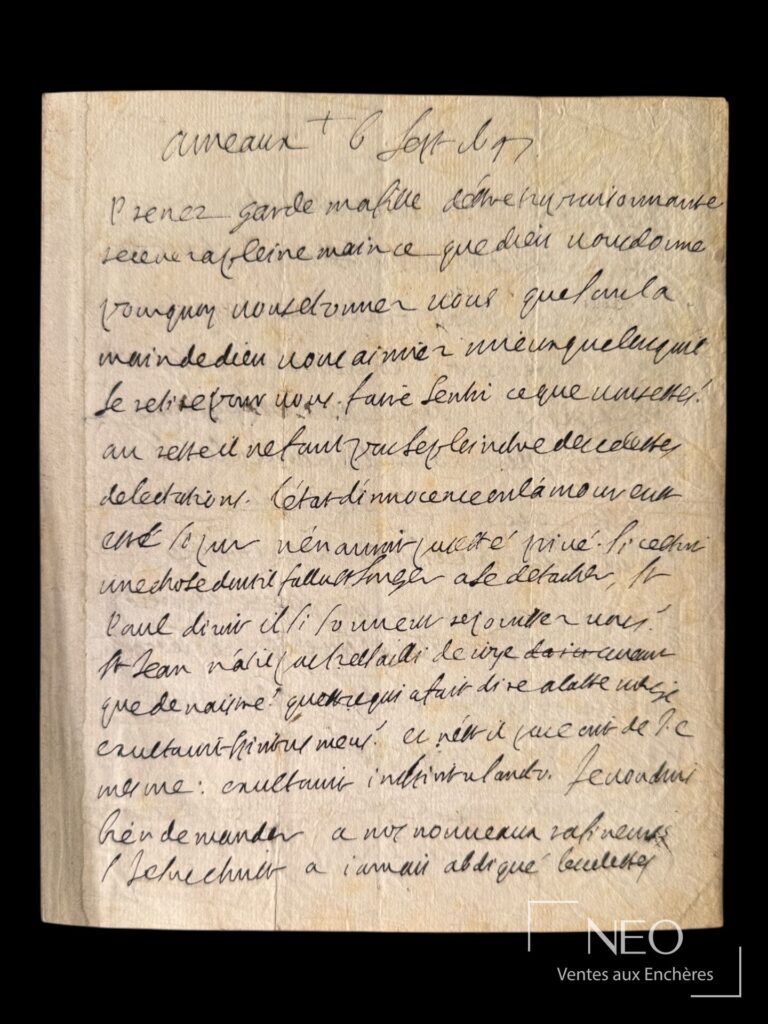 a meaux + 6 Sept 1697
Prenez garde ma fille d'être trop raisonnante
recevez a pleine main ce que dieu vous donne
pourquoy vous etonner vous que la
main de dieu vous aimiez mieux que lorsquil
se retire pour vous faire sentir ce que vous estes?
au reste il ne faut pas se pleindre des celestes
delectations. l'état d'innocence
n'en auroit pas été privé. si cestoit
une chose dont il fallust songer a se detacher, St
Paul diroit il si souvent rejouissez vous?
St Jean n'a t il pas tressailli de joye avant
que de naistre? qu'est ce qui a fait dire a la Ste vierge
exultavit spiritus meus? et n'est il pas ecrit de J. C
mesme: exultavit in spiritu sancto. Je voudrois
bien demander a nos nouveaux rafineurs
si Jesuschrist a iamais abdiqué les celestes
NEO
Ventes aux Enchères